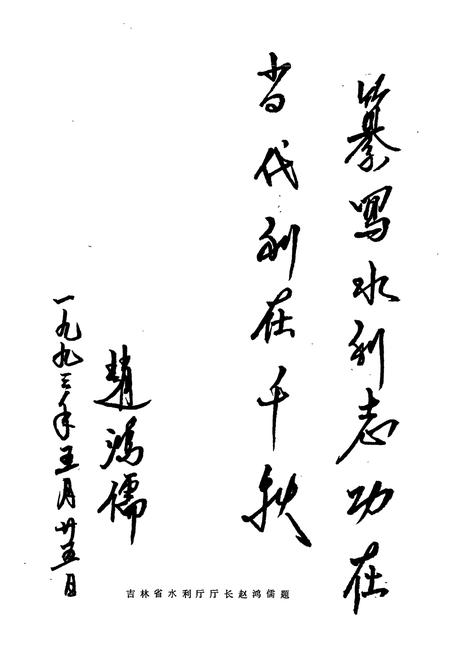 纂写水利志功在
当代利在千秋
趙鴻儒
一九九三年五月廿五日
吉林省水利厅厅长赵鸿儒题